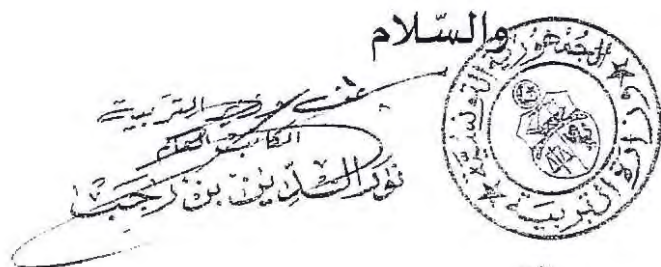 والسّلام
عن وزير التربية
الكاتب العام
نور الدين بن رجب
الجمهورية التونسية
وزارة التربية